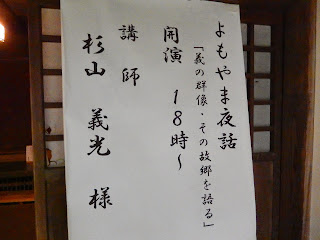 よもやま夜話
「義の群像・その故郷を語る」
開演 18時～
講師
杉山 義光 様